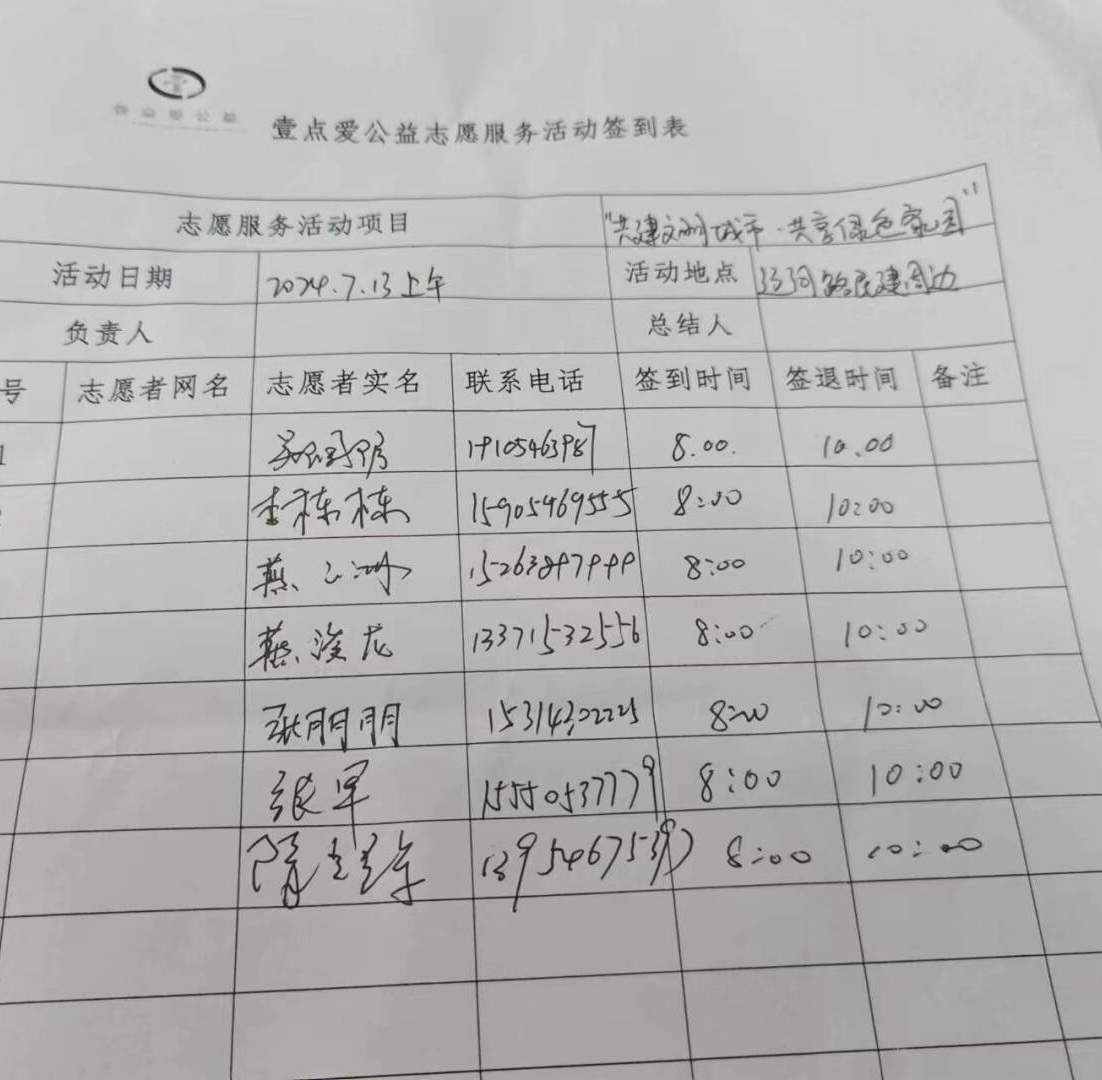 壹点爱公益
壹点爱公益志愿服务活动签到表
志愿服务活动项目 "共建文明城市·共享绿色家园"
活动日期 2024.7.13上午 活动地点 路民建周边
负责人 总结人
号 志愿者网名 志愿者实名 联系电话 签到时间 签退时间 备注
1 8.00. 10.00
李栋栋 15905469555 8:00 10:00
燕 8:00 10:00
燕浚龙 13371532556 8:00 10:00
张朋朋 15314302225 8:00 10:00
张军 15550537779 8:00 10:00
隋 8:00 10:00